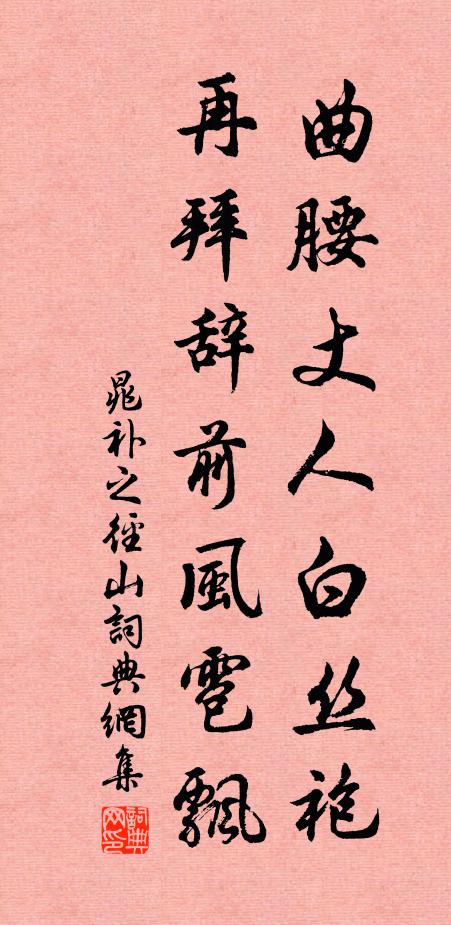 曲腰丈人白丝袍
再拜辞前風雹飄
晁补之徑山詞典網集
詞典网印